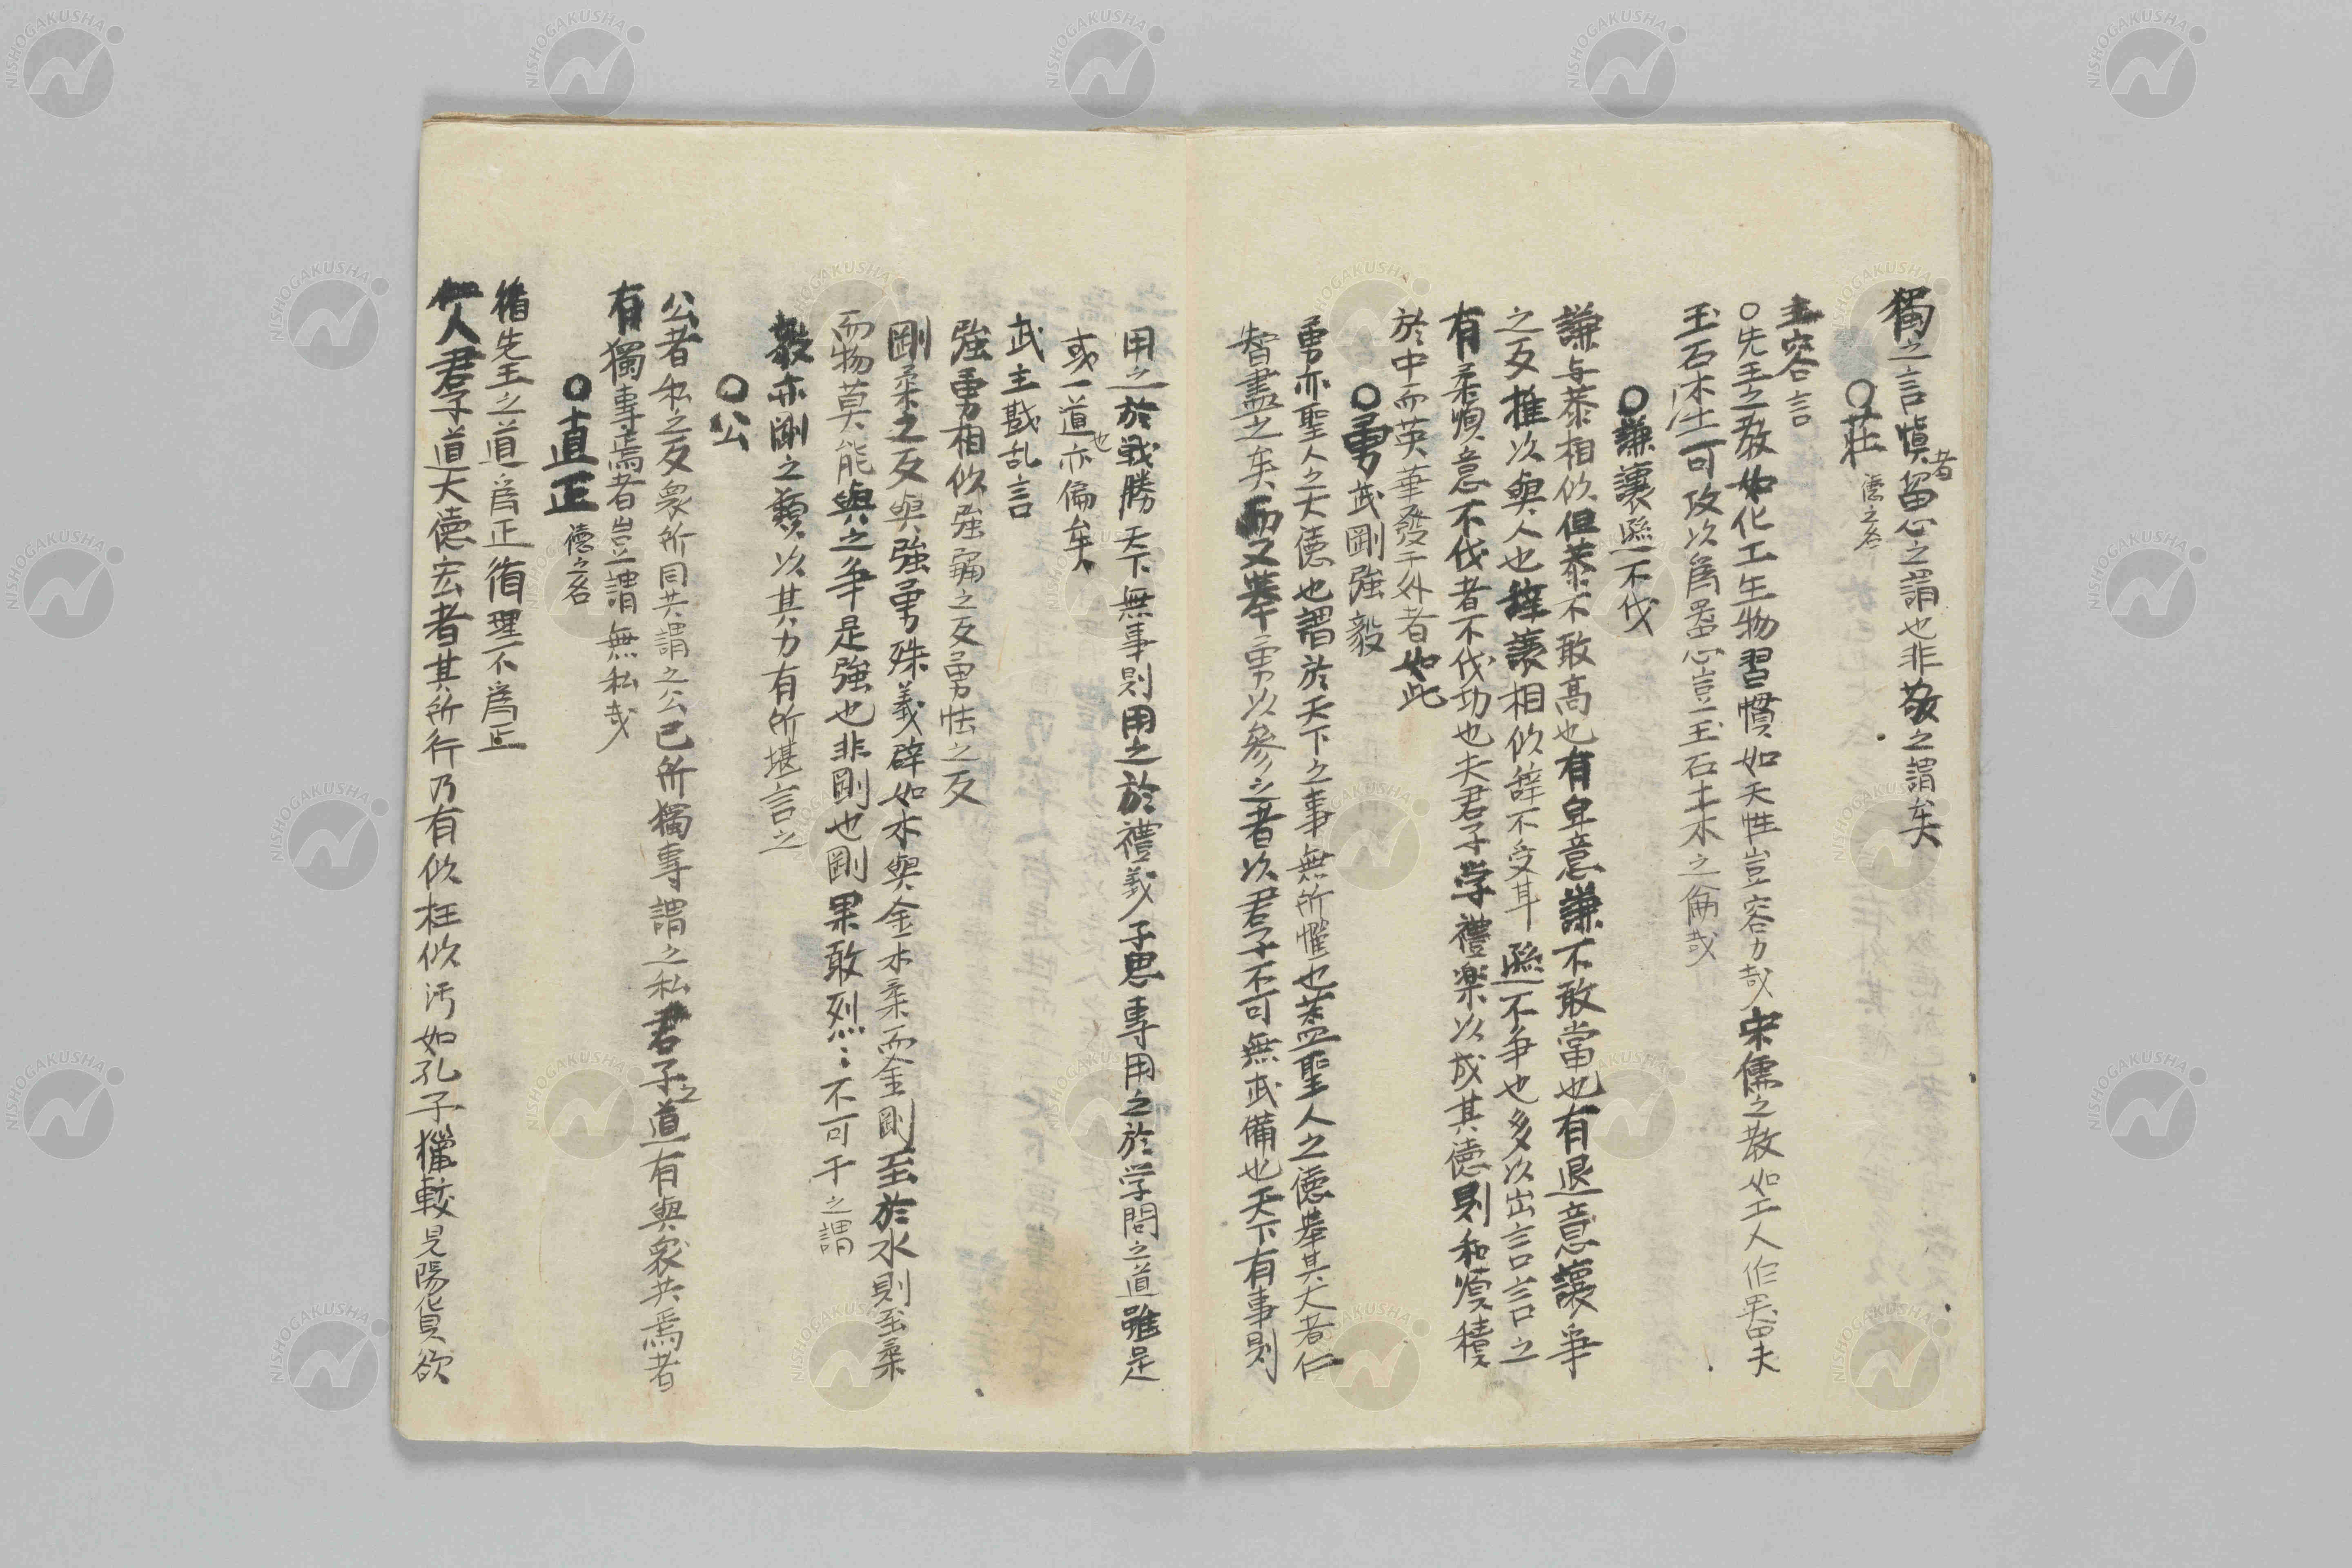 獨之言慎者留心之謂也非敬之謂矣
○莊 德之名
主容言
○先王之教如化工生物習慣如天性豈容力哉宋儒之教如工人作器夫
玉石木土可攻以為器心豈玉石土木之倫哉
○謙讓遜不伐
謙与恭相似但恭不敢高也有卑意謙不敢當也有退意讓爭
之反推以與人也辞讓相似辞不受耳遜不争也多以出言言之
有柔順意不伐者不伐功也夫君子学禮楽以成其德則和順積
於中而英華發于外者如此
○勇武剛強毅
勇亦聖人之大德也謂於天下之事無所懼也蓋聖人之德舉其大者仁
智盡之矣而又舉勇以參之者以君子不可無武備也天下有事則
用之於戦勝天下無事則用之於禮義子思専用之於学問之道雖是
或一道也亦偏矣
武主戡乱言
強勇相似強弱之反勇怯之反
剛柔之反與強勇殊義辟如木與金木柔而金剛至於水則至柔
而物莫能與之争是強也非剛也剛果敢烈〻不可干之謂
毅亦剛之類以其力有所堪言之
○公
公者私之反衆所同共謂之公己所獨専謂之私君子之道有與衆共焉者
有獨専焉者豈謂無私哉
○直正 德之名
循先王之道為正循理不為正
人君子道大德宏者其所行乃有似枉似汚如孔子獵較見陽貨欲